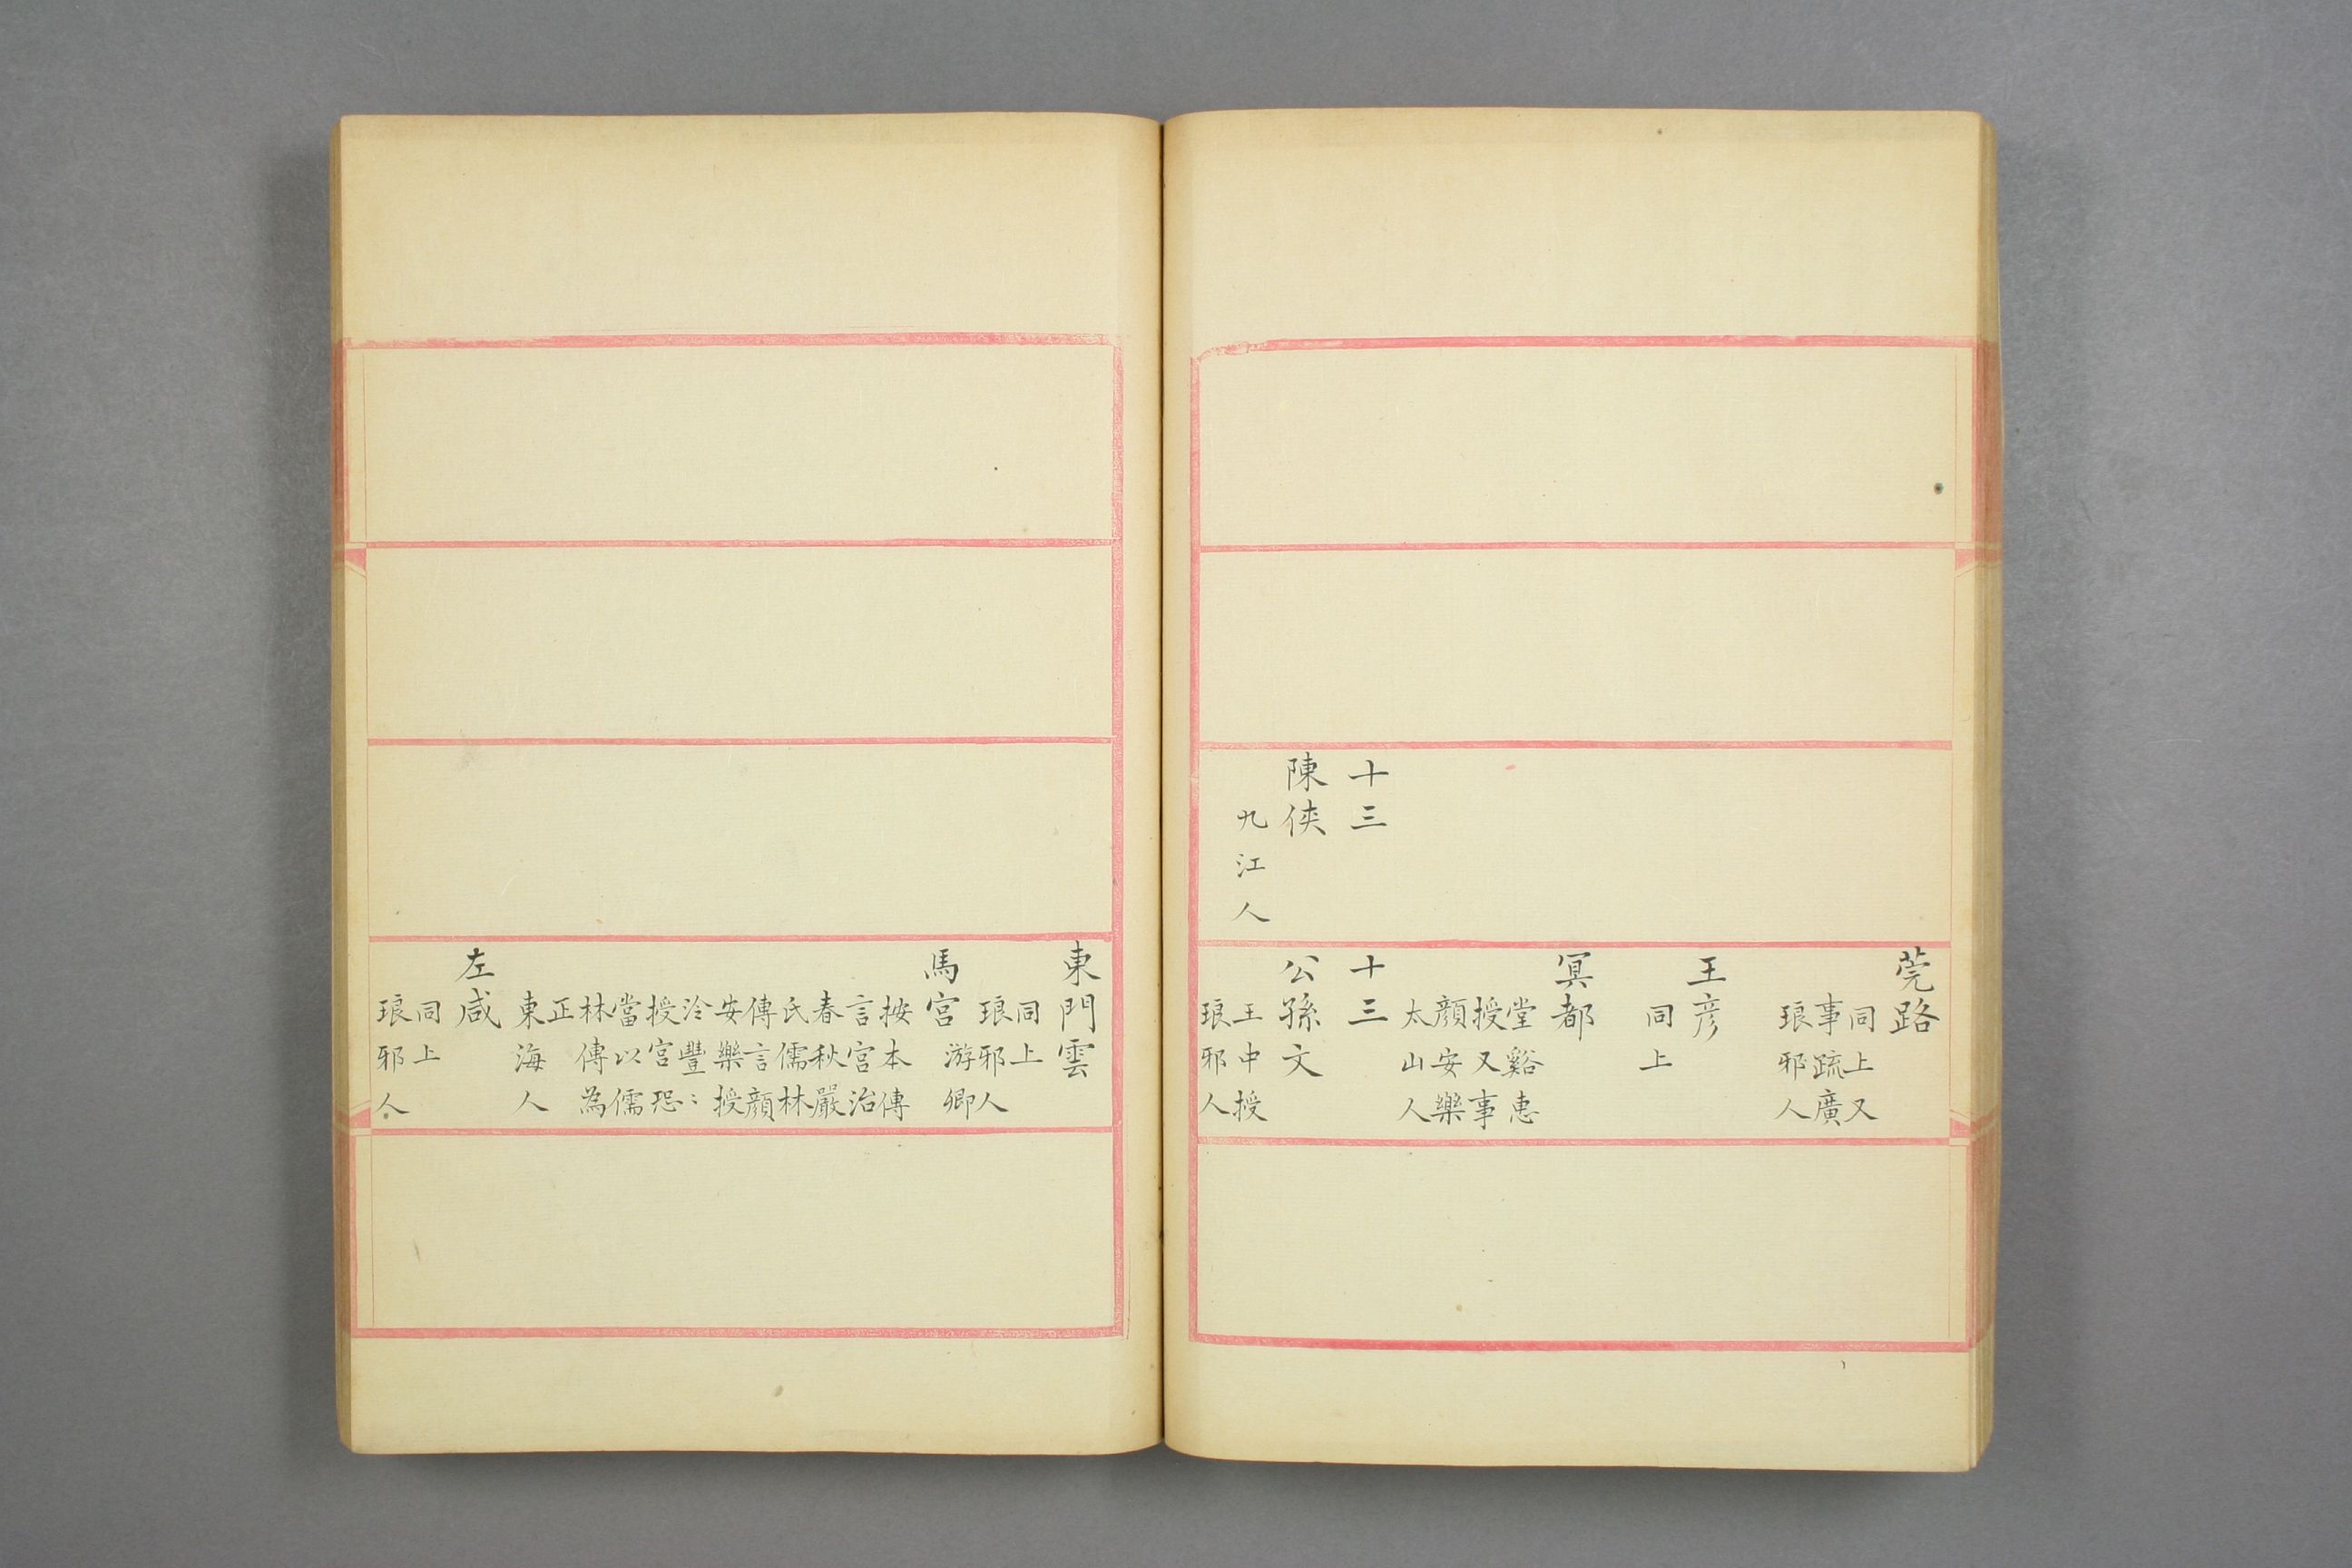 十三
陳俠
九江人
莞路
同上又
事疏廣
琅邪人
王彦
同上
冥都
堂谿惠
授又事
顏安樂
太山人
十三
公孫文
王中授
琅邪人
東門雲
同上
琅邪人
馬宮
游卿
按本傳
言宮治
春秋嚴
氏儒林
傳言顏
安樂授
泠豐〻
授宮恐
當以儒
林傳為
正
東海人
左咸
同上
琅邪人